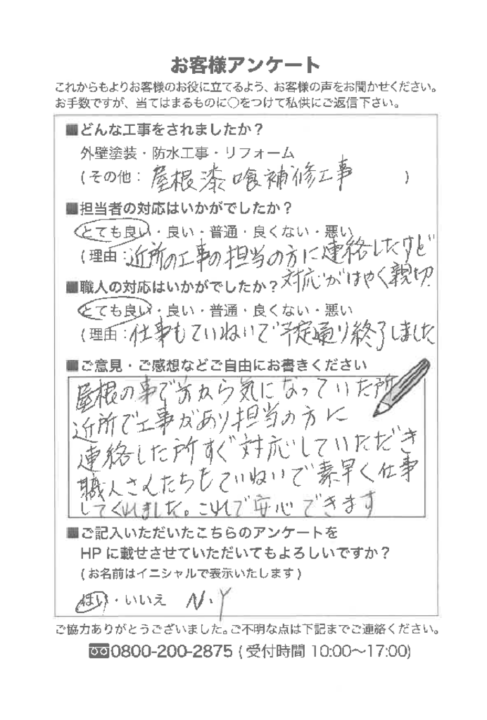 お客様アンケート
これからもよりお客様のお役に立てるよう、お客様の声をお聞かせください。
お手数ですが、当てはまるものに○をつけて私供にご返信下さい。
■どんな工事をされましたか？
外壁塗装・防水工事・リフォーム
(その他：屋根漆喰補修工事)
■担当者の対応はいかがでしたか？
とても良い・良い・普通・良くない・悪い
(理由：近所の工事の担当の方に連絡したけど
対応がはやく親切
■職人の対応はいかがでしたか？
とても良い・良い・普通・良くない・悪い
(理由：仕事もていねいで予定通り終了しました
■ご意見・ご感想などご自由にお書きください
屋根の事で前から気になっていた所
近所で工事があり担当の方に
連絡した所すぐ対応していただき
職人さんたちもていねいで素早く仕事
してくれました。これで安心できます
■ご記入いただいたこちらのアンケートを
HPに載せさせていただいてもよろしいですか？
(お名前はイニシャルで表示いたします)
はい・いいえ N.Y
ご協力ありがとうございました。ご不明な点は下記までご連絡ください。
0800-200-2875 (受付時間 10:00～17:00)